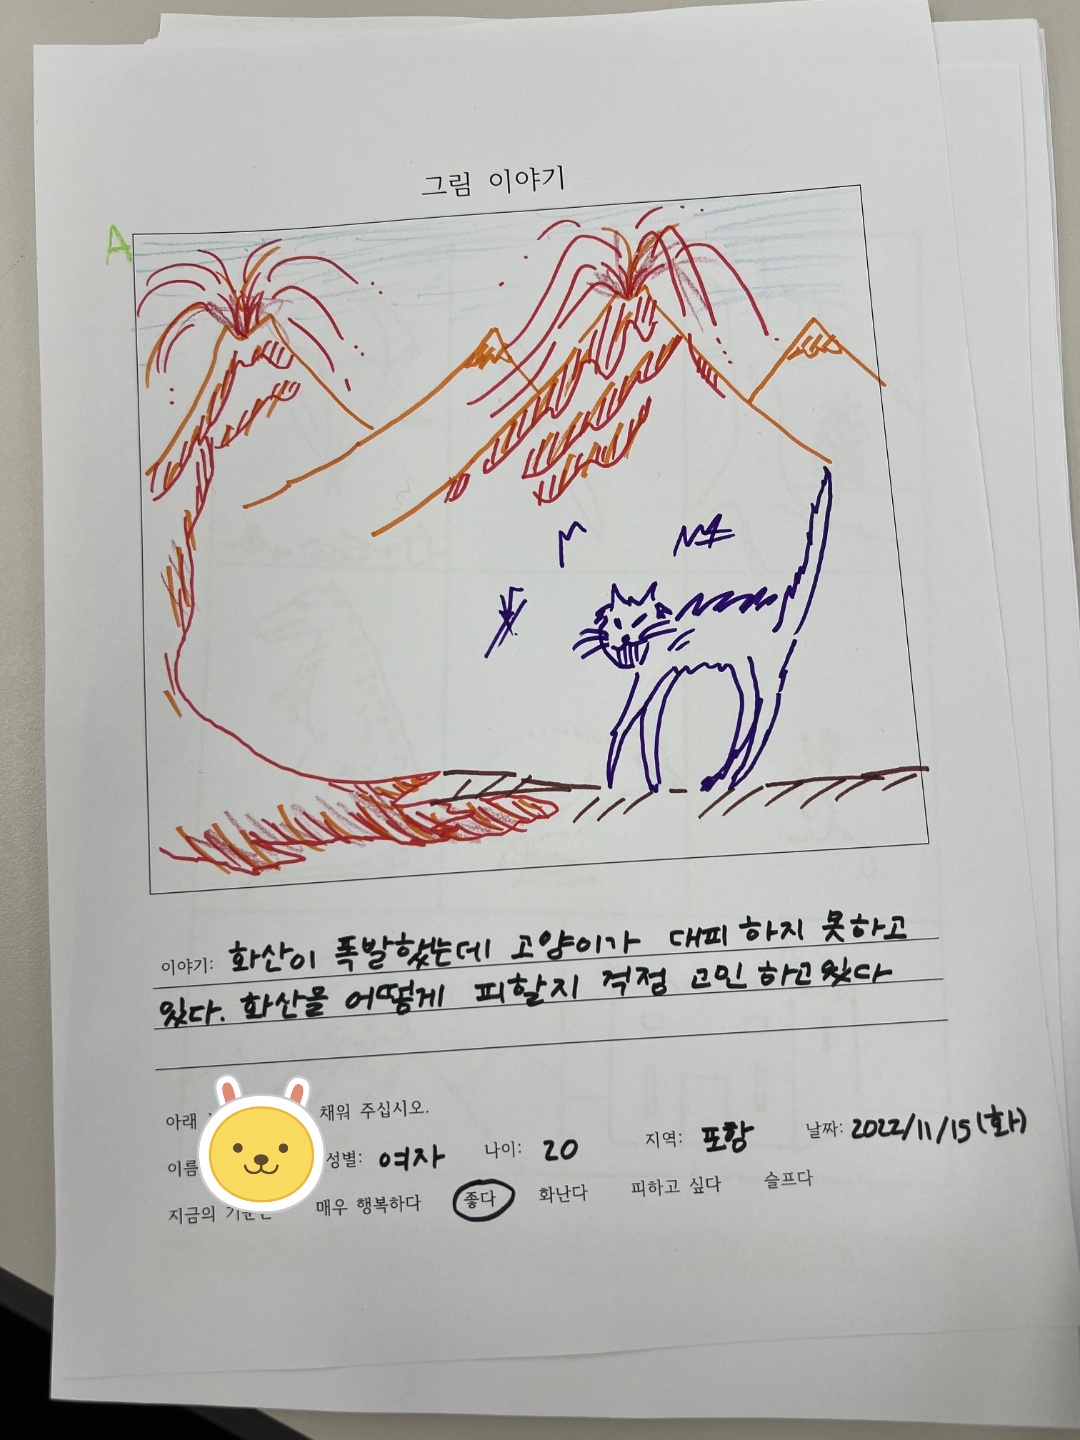 그림 이야기
A
이야기: 화산이 폭발했는데 고양이가 대피 하지 못하고
있다. 화산물 어떻게 피할지 걱정 고민 하고 있다
아래 채워 주십시오.
이름 성별: 여자 나이: 20 지역: 포항 날짜: 2022/11/15(화)
지금의 매우 행복하다 좋다 화난다 피하고 싶다 슬프다